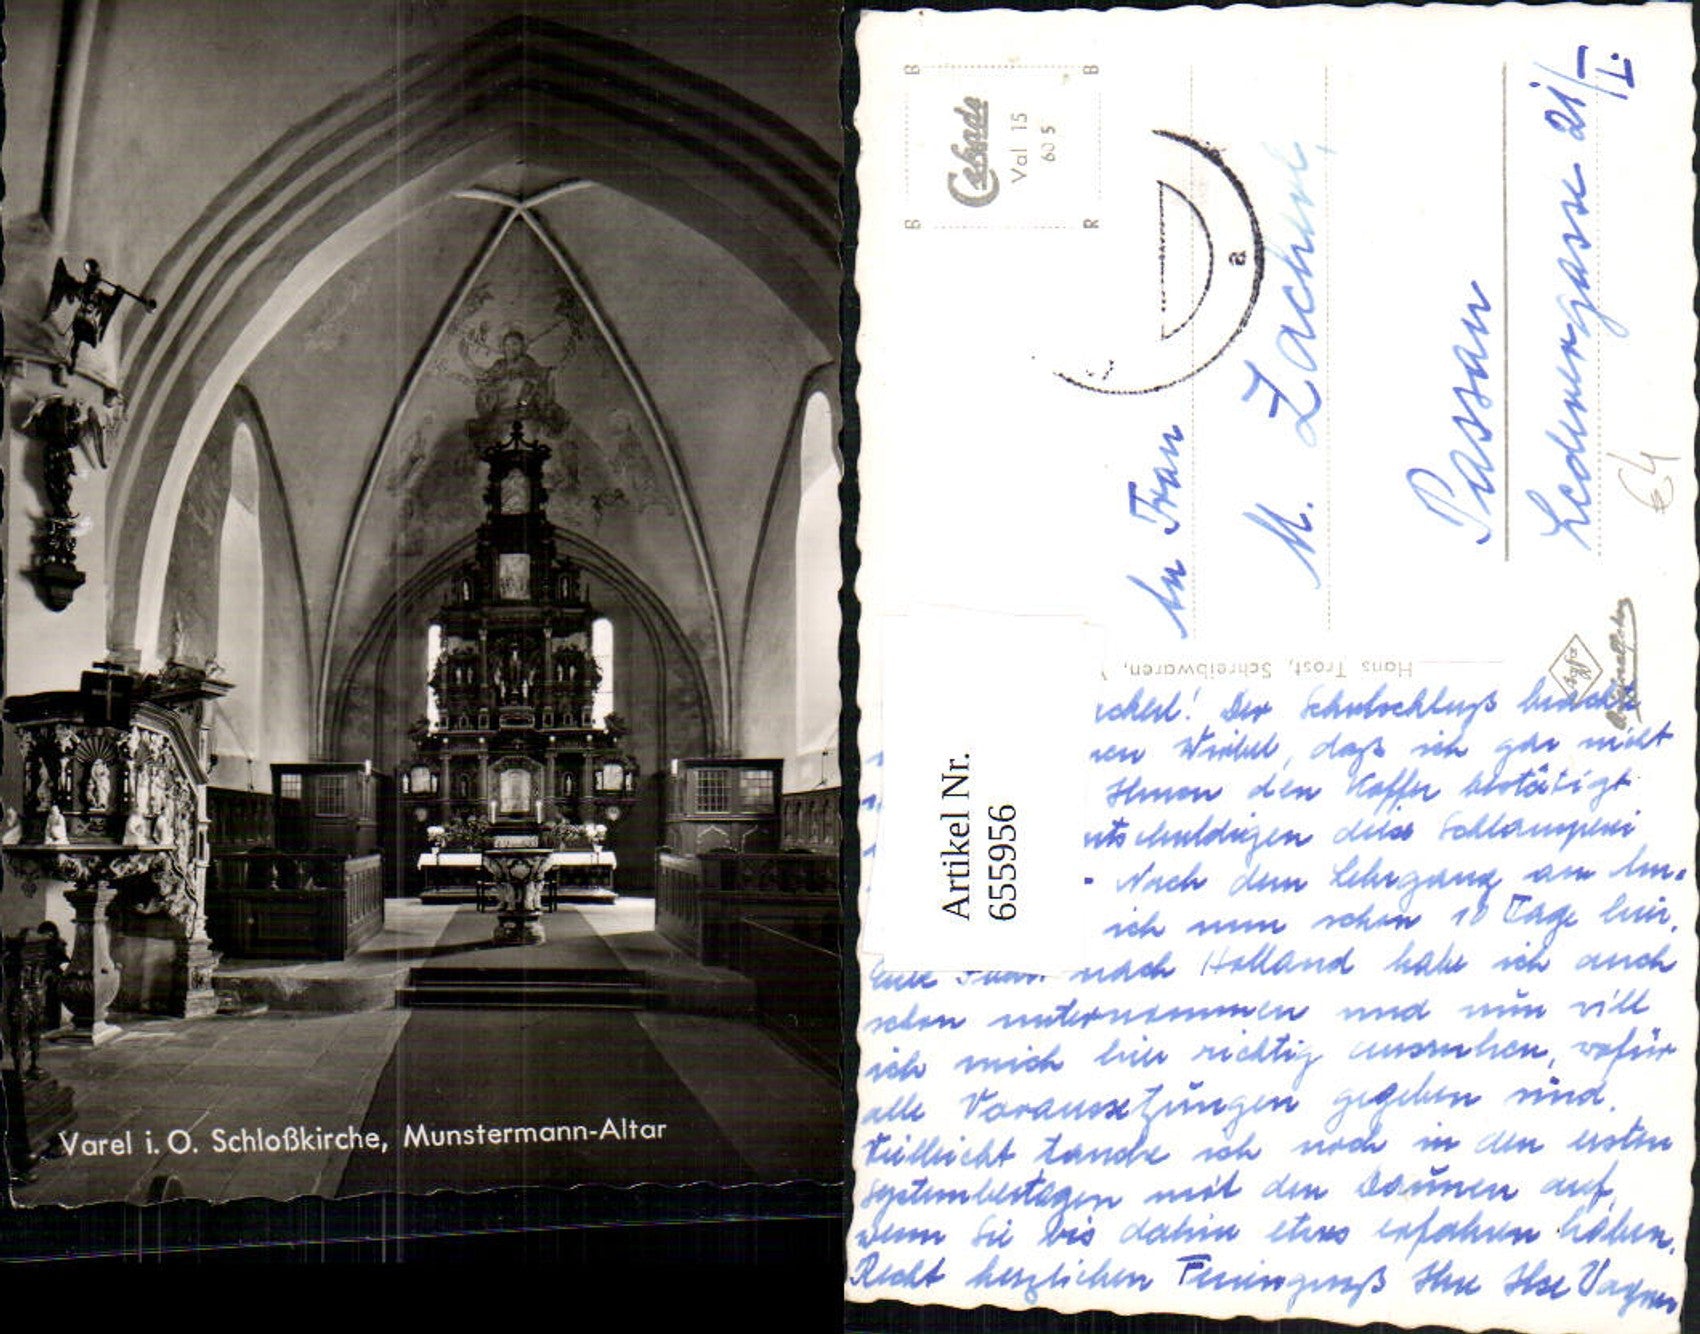 Varel i. O. Schloßkirche, Munstermann-Altar
B B
Cekade
Val 15
60 5
B R
a
An Frau
M. Zacherl,
Passau
Ledrergasse 21/
II.
€4
Hans Trost, Schreibwaren,
Agfa
Artikel Nr.
655956
cherl! Der Schulschluß brachte
nen Wirbel, daß ich gar nicht
Ihnen den Koffer bestätigt
ntschuldigen diese Schlamperei
Nach dem Lehrgang am
ich nun schon 10 Tage hier.
Eine nach Holland habe ich auch
schon unternommen und nun will
ich mich hier richtig ausruhen, wofür
alle Voraussetzungen gegeben sind.
Vielleicht tauche ich noch in den ersten
Systembertagen mit den auf,
wenn Sie bis dahin etwas erfahren haben.
Recht herzlichen Feriengruß Ihre Ilse Wagner